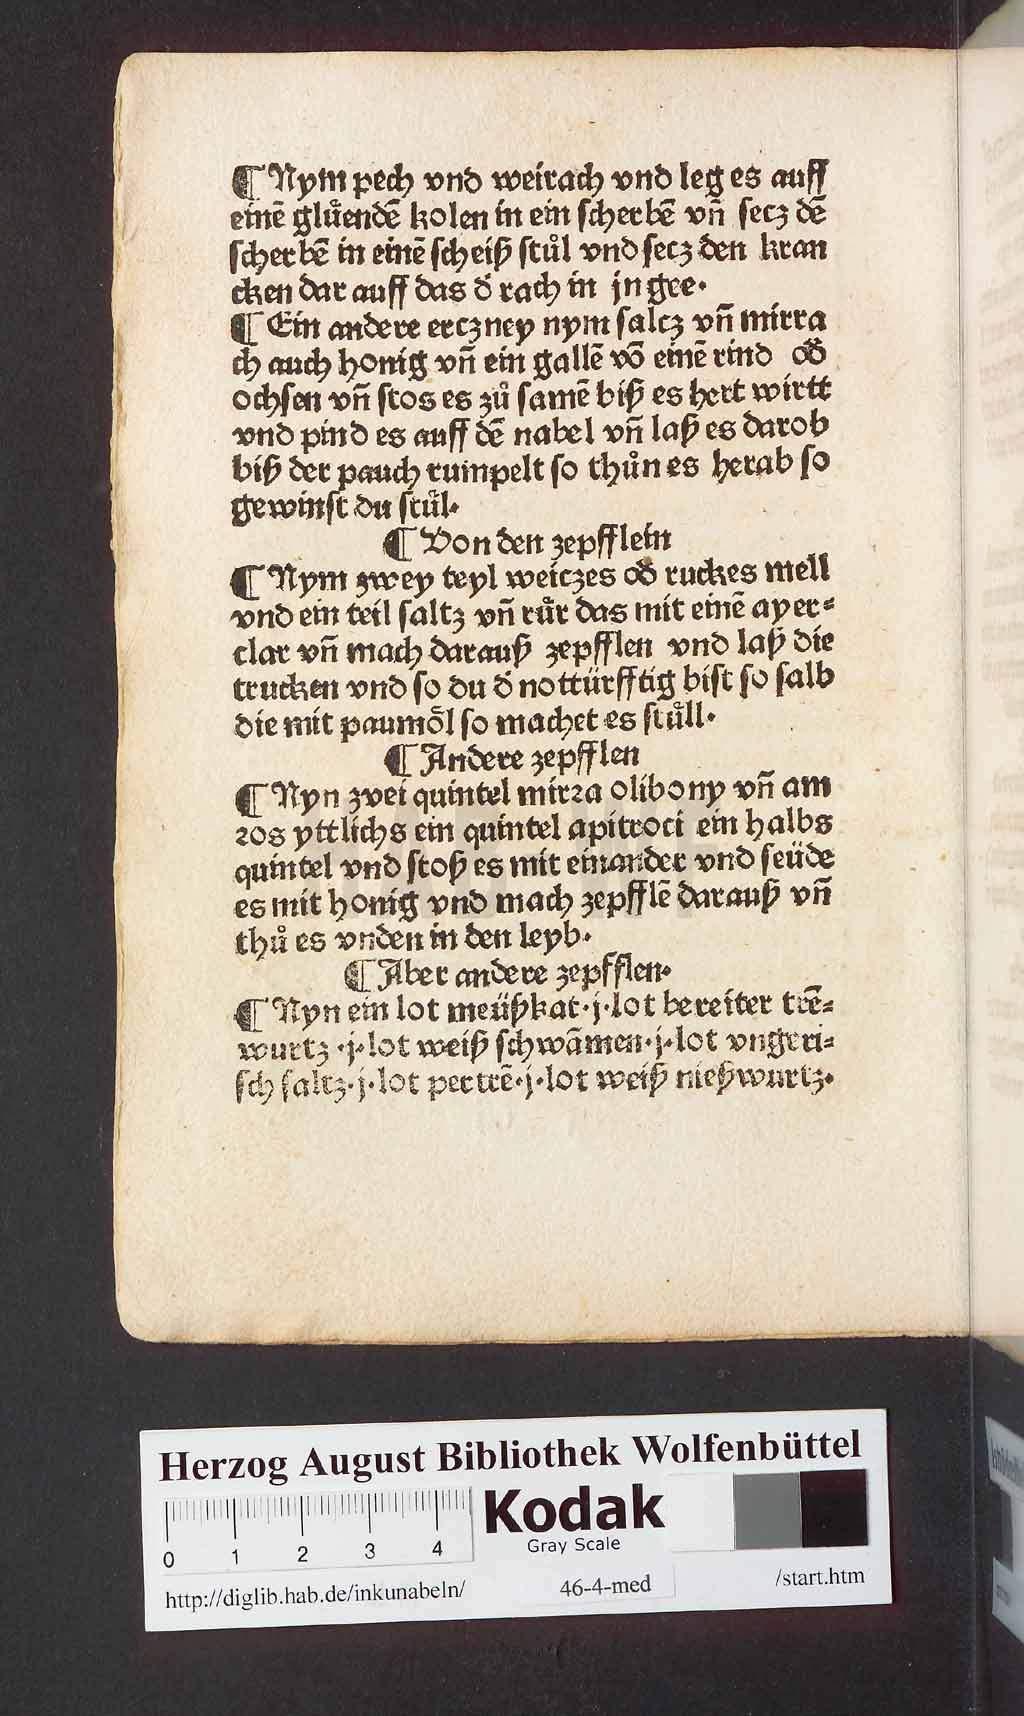 ¶ Nym pech vnd weirach vnd leg es auff
einē glůendē kolen in ein scherbē vñ secz dē
scherbē in einē scheiß stůl vnd secz den kran
cken dar auff das d̄ rach in jn gee.
¶ Ein andere erczney nym salcz vñ mirra
ch auch honig vñ ein gallē vō einē rind od̄
ochsen vñ stos es zů samē biß es hert wirtt
vnd pind es auff dē nabel vñ laß es darob
biß der pauch rumpelt so thůn es herab so
gewinst du stůl.
¶ Von den zepfflein
¶ Nym zwey teyl weiczes od̄ ruckes mell
vnd ein teil saltz vñ růr das mit einē ayer=
clar vñ mach darauß zepfflen vnd laß die
trucken vnd so du d̄ nottürfftig bist so salb
die mit paumöl so machet es stůll.
¶ Andere zepfflen
¶ Nyn zvei quintel mirra olibony vñ am
ros yttlichs ein quintel apitroci ein halbs
quintel vnd stoß es mit einander vnd seüde
es mit honig vnd mach zepfflē darauß vñ
thů es vnden in den leyb.
¶ Aber andere zepfflen.
¶ Nyn ein lot meüßkat·j·lot bereiter trē=
wurtz·j·lot weiß schwāmen·j·lot vngeri=
sch saltz·j·lot pertrē·j·lot weiß nießwurtz.
Herzog August Bibliothek Wolfenbüttel
0 1 2 3 4
Kodak
Gray Scale
http://diglib.hab.de/inkunabeln/ 46-4-med /start.htm